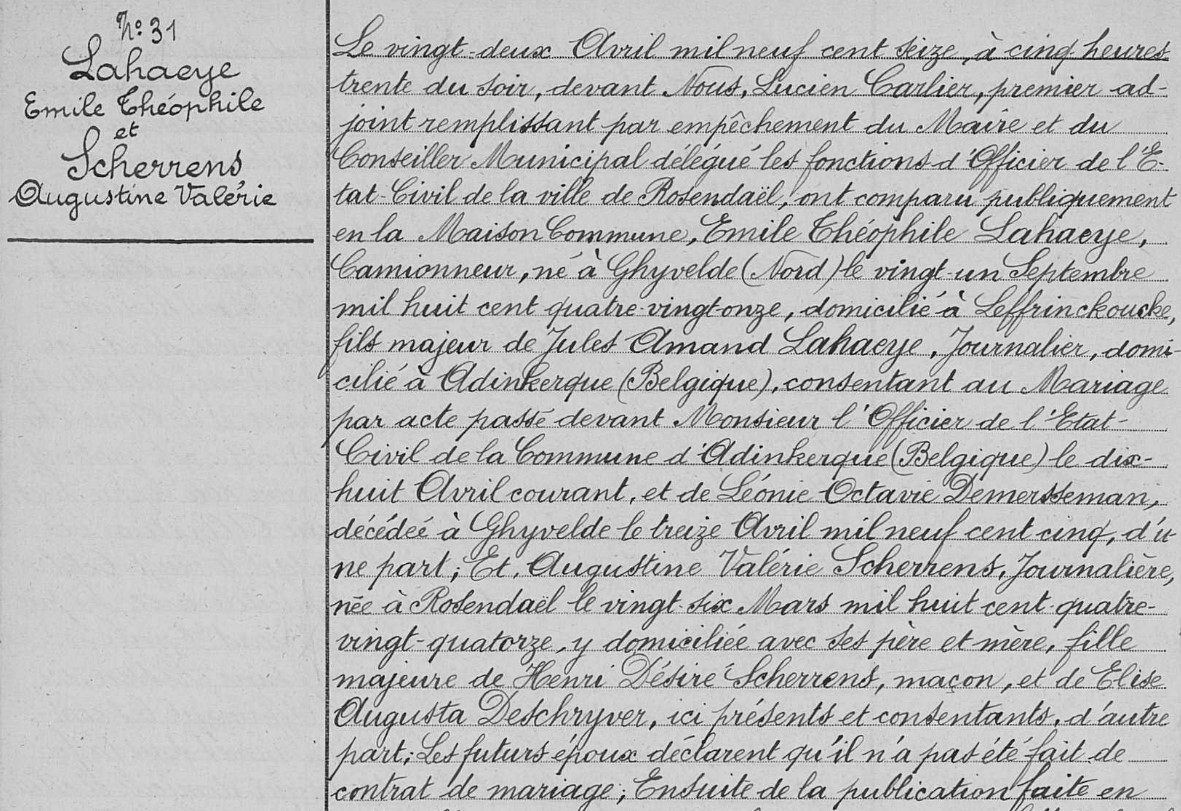 N° 31
Lahaeye
Emile Théophile
et
Scherrens
Augustine Valérie
Le vingt-deux Avril mil neuf cent seize, à cinq heures
trente du soir, devant Nous, Lucien Carlier, premier ad-
joint remplissant par empêchement du Maire et du
Conseiller Municipal délégué les fonctions d'Officier de l'E-
tat-Civil de la ville de Rosendaël, ont comparu publiquement
en la Maison Commune, Emile Théophile Lahaeye,
Camionneur, né à Ghyvelde (Nord) le vingt-un Septembre
mil huit cent quatre-vingt-onze, domicilié à Leffrinckoucke,
fils majeur de Jules Amand Lahaeye, Journalier, domi-
cilié à Adinkerque (Belgique), consentant au Mariage
par acte passé devant Monsieur l'Officier de l'Etat-
Civil de la Commune d'Adinkerque (Belgique) le dix-
huit Avril courant, et de Léonie Octavie Demersseman,
décédée à Ghyvelde le treize Avril mil neuf cent cinq, d'u-
ne part; Et, Augustine Valérie Scherrens, Journalière,
née à Rosendaël le vingt-six Mars mil huit cent quatre-
vingt-quatorze, y domiciliée avec ses père et mère, fille
majeure de Henri Désiré Scherrens, maçon, et de Elise
Augusta Deschryver, ici présents et consentants, d'autre
part; Les futurs époux déclarent qu'il n'a pas été fait de
contrat de mariage; Ensuite de la publication faite en